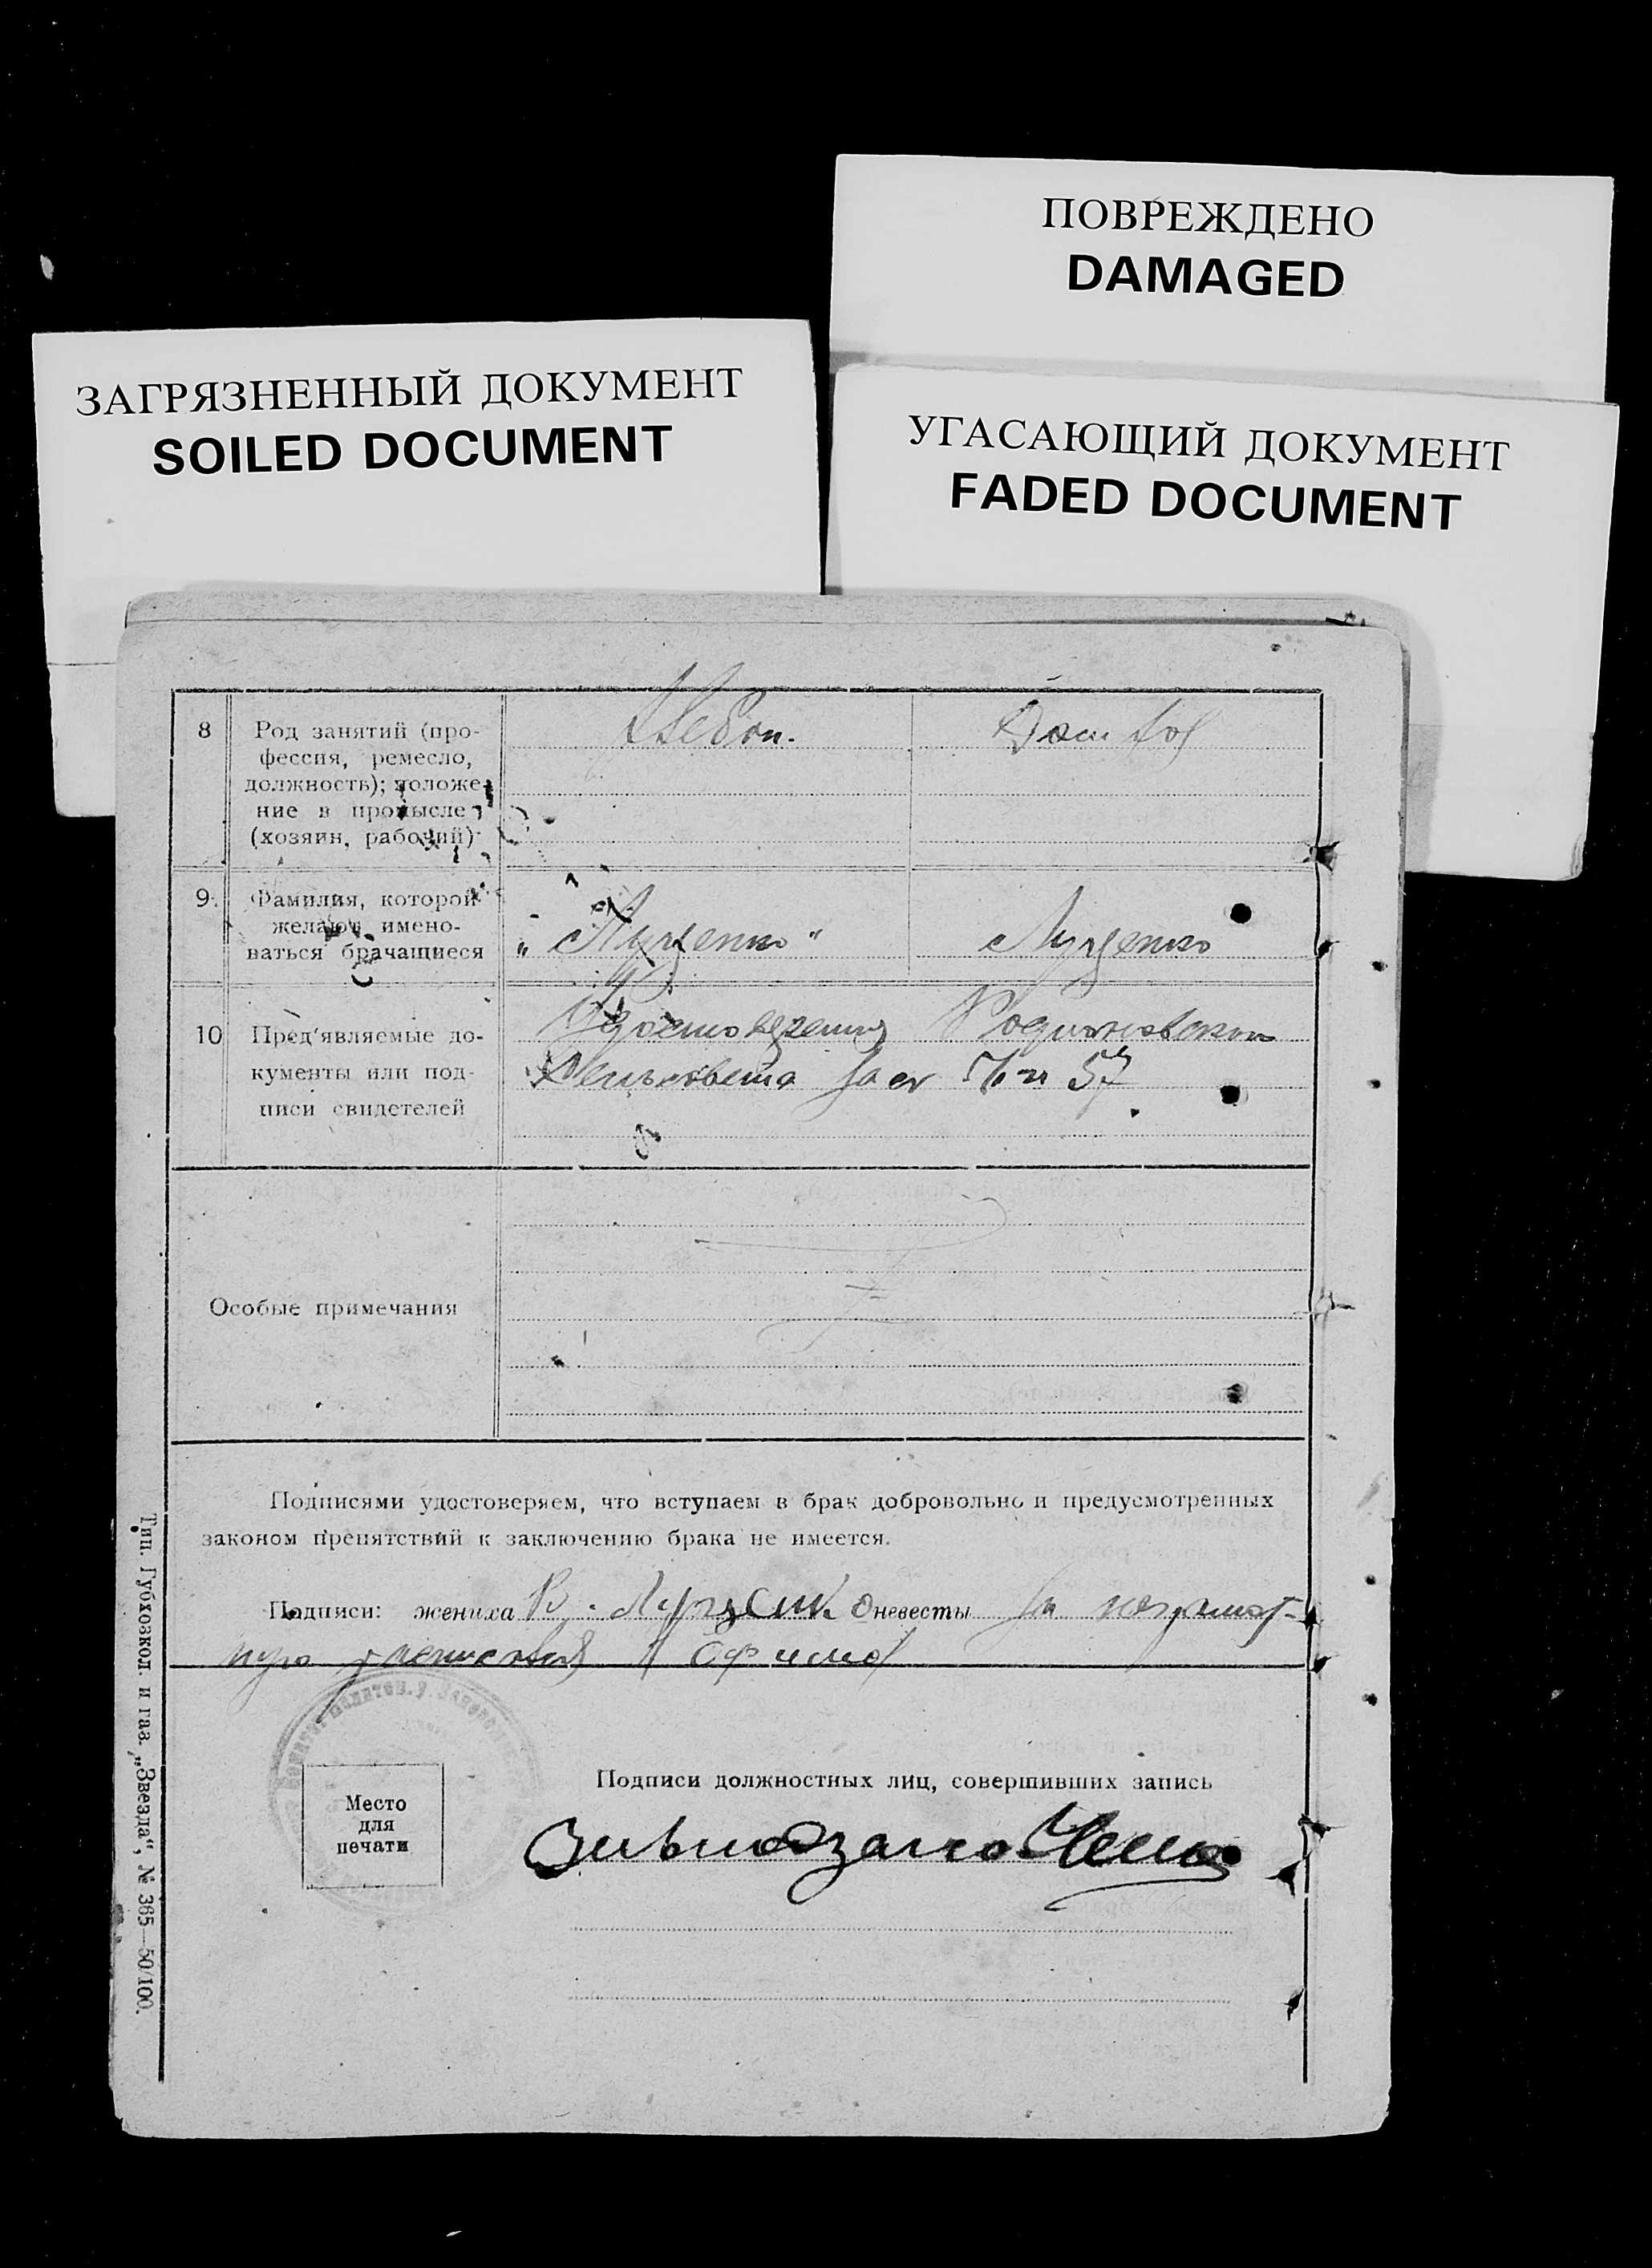 ПОВРЕЖДЕНО
DAMAGED
ЗАГРЯЗНЕННЫЙ ДОКУМЕНТ
SOILED DOCUMENT
УГАСАЮЩИЙ ДОКУМЕНТ
FADED DOCUMENT
8 Род занятий (про-
фессия, ремесло,
должность); положе-
ние в промысле
(хозяин, рабочий)
Хлебоп.
Дом хоз
9. Фамилия, которой
желают имено-
ваться брачащиеся
„Луценко“
Луценко
10 Пред'являемые до-
кументы или под-
писи свидетелей
Удостоверения Родионовского
Сельсовета за №
Особые примечания
Подписями удостоверяем, что вступаем в брак добровольно и предусмотренных
законом препятствий к заключению брака не имеется.
Подписи: жениха Луценко невесты за неграмот-
ную
Место
для
печати
Подписи должностных лиц, совершивших запись
Тип. Губхозкол и газ. „Звезда“, № 365—50/100.